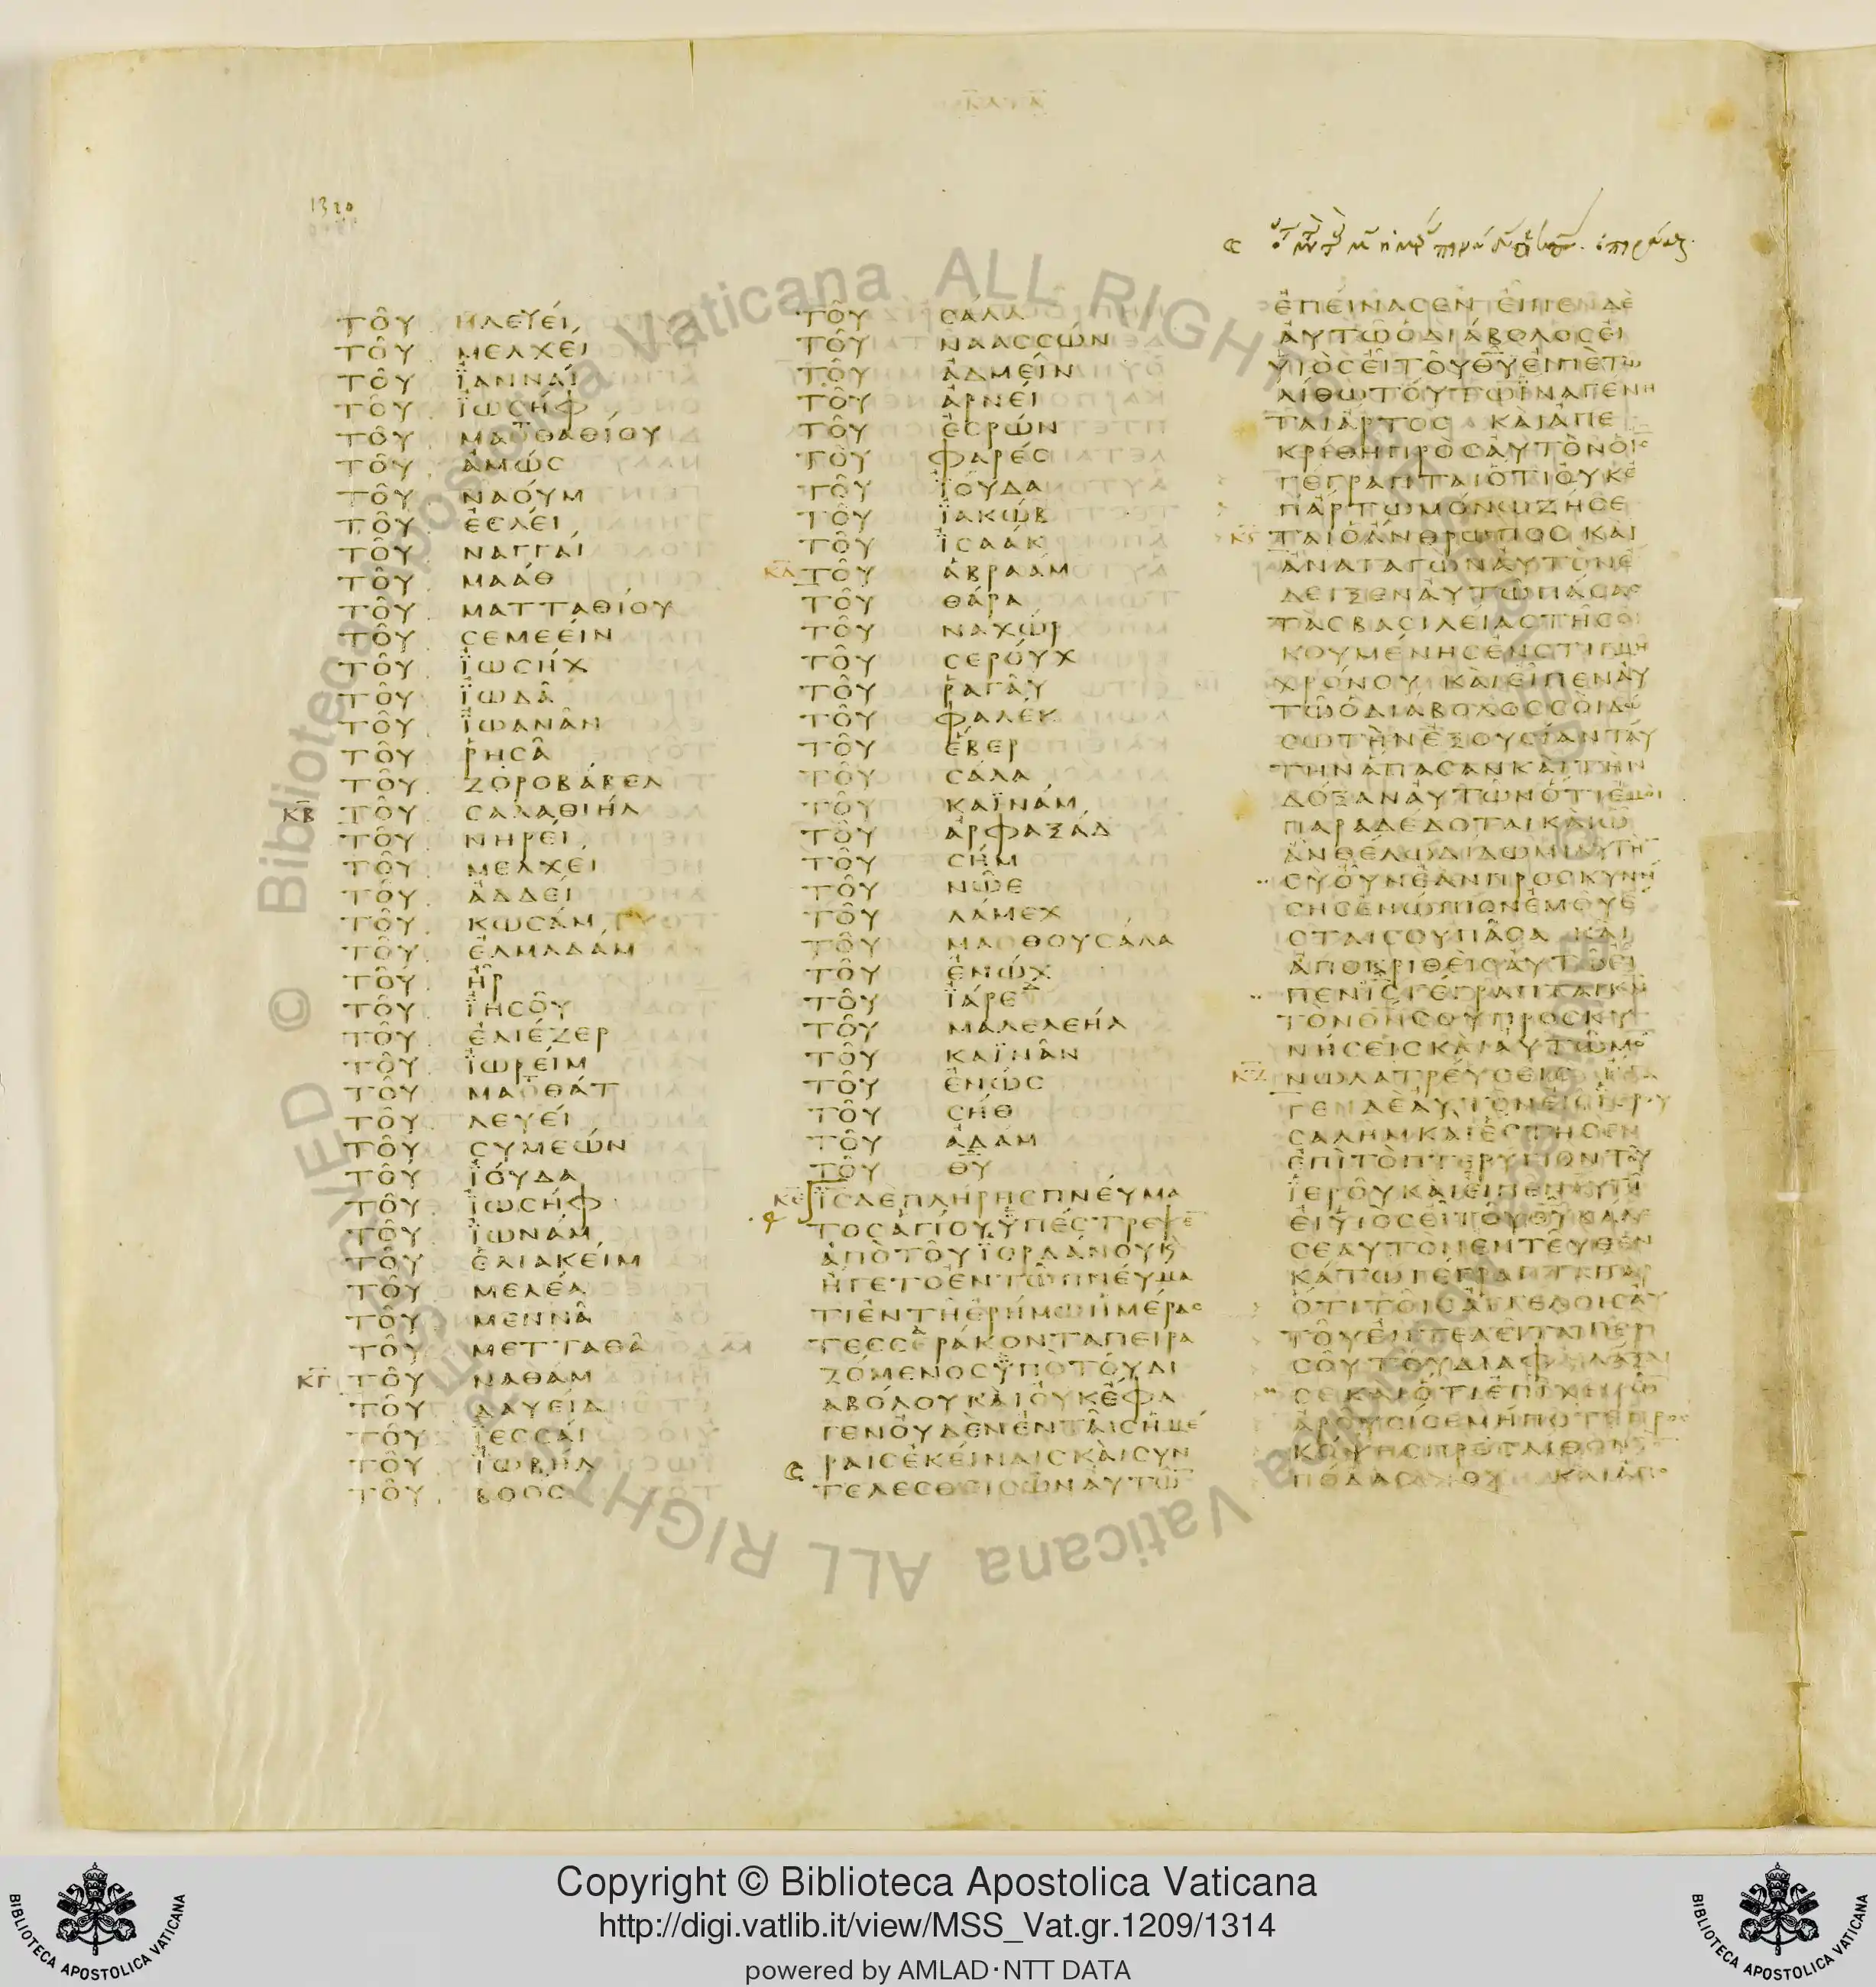 1310
ΤΟΥ ΗΛΕΥΕΙ
ΤΟΥ ΜΕΛΧΕΙ
ΤΟΥ ΪΑΝΝΑΙ
ΤΟΥ ΪΩΣΗΦ
ΤΟΥ ΜΑΤΘΑΘΙΟΥ
ΤΟΥ ΑΜΩΣ
ΤΟΥ ΝΑΟΥΜ
ΤΟΥ ΕΣΛΕΙ
ΤΟΥ ΝΑΓΓΑΙ
ΤΟΥ ΜΑΑΘ
ΤΟΥ ΜΑΤΤΑΘΙΟΥ
ΤΟΥ ΣΕΜΕΕΙΝ
ΤΟΥ ΪΩΣΗΧ
ΤΟΥ ΪΩΔΑ
ΤΟΥ ΪΩΑΝΑΝ
ΤΟΥ ΡΗΣΑ
ΤΟΥ ΖΟΡΟΒΑΒΕΛ
ΚΒ ΤΟΥ ΣΑΛΑΘΙΗΛ
ΤΟΥ ΝΗΡΕΙ
ΤΟΥ ΜΕΛΧΕΙ
ΤΟΥ ΑΔΔΕΙ
ΤΟΥ ΚΩΣΑΜ
ΤΟΥ ΕΛΜΑΔΑΜ
ΤΟΥ ΗΡ
ΤΟΥ ΪΗΣΟΥ
ΤΟΥ ΕΛΙΕΖΕΡ
ΤΟΥ ΪΩΡΕΙΜ
ΤΟΥ ΜΑΤΘΑΤ
ΤΟΥ ΛΕΥΕΙ
ΤΟΥ ΣΥΜΕΩΝ
ΤΟΥ ΪΟΥΔΑ
ΤΟΥ ΪΩΣΗΦ
ΤΟΥ ΪΩΝΑΜ
ΤΟΥ ΕΛΙΑΚΕΙΜ
ΤΟΥ ΜΕΛΕΑ
ΤΟΥ ΜΕΝΝΑ
ΤΟΥ ΜΕΤΤΑΘΑ
ΚΓ ΤΟΥ ΝΑΘΑΜ
ΤΟΥ ΔΑΥΕΙΔ
ΤΟΥ ΪΕΣΣΑΙ
ΤΟΥ ΪΩΒΗΛ
ΤΟΥ ΒΟΟΣ
ΤΟΥ ΣΑΛΑ
ΤΟΥ ΝΑΑΣΣΩΝ
ΤΟΥ ΑΔΜΕΙΝ
ΤΟΥ ΑΡΝΕΙ
ΤΟΥ ΕΣΡΩΝ
ΤΟΥ ΦΑΡΕΣ
ΤΟΥ ΪΟΥΔΑ
ΤΟΥ ΪΑΚΩΒ
ΤΟΥ ΪΣΑΑΚ
ΚΔ ΤΟΥ ΑΒΡΑΑΜ
ΤΟΥ ΘΑΡΑ
ΤΟΥ ΝΑΧΩΡ
ΤΟΥ ΣΕΡΟΥΧ
ΤΟΥ ΡΑΓΑΥ
ΤΟΥ ΦΑΛΕΚ
ΤΟΥ ΕΒΕΡ
ΤΟΥ ΣΑΛΑ
ΤΟΥ ΚΑΪΝΑΜ
ΤΟΥ ΑΡΦΑΞΑΔ
ΤΟΥ ΣΗΜ
ΤΟΥ ΝΩΕ
ΤΟΥ ΛΑΜΕΧ
ΤΟΥ ΜΑΘΟΥΣΑΛΑ
ΤΟΥ ΕΝΩΧ
ΤΟΥ ΪΑΡΕΔ
ΤΟΥ ΜΑΛΕΛΕΗΛ
ΤΟΥ ΚΑΪΝΑΝ
ΤΟΥ ΕΝΩΣ
ΤΟΥ ΣΗΘ
ΤΟΥ ΑΔΑΜ
ΤΟΥ ΘΥ
ΚΕ ΪΣ ΔΕ ΠΛΗΡΗΣ ΠΝΕΥΜΑ
ΤΟΣ ΑΓΙΟΥ ΫΠΕΣΤΡΕΨΕ
ΑΠΟ ΤΟΥ ΪΟΡΔΑΝΟΥ Κ
ΗΓΕΤΟ ΕΝ ΤΩ ΠΝΕΥΜΑ
ΤΙ ΕΝ ΤΗ ΕΡΗΜΩ ΗΜΕΡΑΣ
ΤΕΣΣΕΡΑΚΟΝΤΑ ΠΕΙΡΑ
ΖΟΜΕΝΟΣ ΫΠΟ ΤΟΥ ΔΙ
ΑΒΟΛΟΥ ΚΑΙ ΟΥΚ ΕΦΑ
ΓΕΝ ΟΥΔΕΝ ΕΝ ΤΑΙΣ ΗΜΕ
ΡΑΙΣ ΕΚΕΙΝΑΙΣ ΚΑΙ ΣΥΝ
ΤΕΛΕΣΘΕΙΣΩΝ ΑΥΤΩ
ΕΠΕΙΝΑΣΕΝ ΕΙΠΕΝ ΔΕ
ΑΥΤΩ Ο ΔΙΑΒΟΛΟΣ ΕΙ
ΥΙΟΣ ΕΙ ΤΟΥ ΘΥ ΕΙΠΕ ΤΩ
ΛΙΘΩ ΤΟΥΤΩ ΪΝΑ ΓΕΝΗ
ΤΑΙ ΑΡΤΟΣ ΚΑΙ ΑΠΕ
ΚΡΙΘΗ ΠΡΟΣ ΑΥΤΟΝ Ο ΙΣ
ΓΕΓΡΑΠΤΑΙ ΟΤΙ ΟΥΚ Ε
Π ΑΡΤΩ ΜΟΝΩ ΖΗΣΕ
ΚϚ ΤΑΙ Ο ΑΝΘΡΩΠΟΣ ΚΑΙ
ΑΝΑΓΑΓΩΝ ΑΥΤΟΝ Ε
ΔΕΙΞΕΝ ΑΥΤΩ ΠΑΣΑΣ
ΤΑΣ ΒΑΣΙΛΕΙΑΣ ΤΗΣ ΟΙ
ΚΟΥΜΕΝΗΣ ΕΝ ΣΤΙΓΜΗ
ΧΡΟΝΟΥ ΚΑΙ ΕΙΠΕΝ ΑΥ
ΤΩ Ο ΔΙΑΒΟΛΟΣ ΣΟΙ ΔΩ
ΣΩ ΤΗΝ ΕΞΟΥΣΙΑΝ ΤΑΥ
ΤΗΝ ΑΠΑΣΑΝ ΚΑΙ ΤΗΝ
ΔΟΞΑΝ ΑΥΤΩΝ ΟΤΙ ΕΜΟΙ
ΠΑΡΑΔΕΔΟΤΑΙ ΚΑΙ Ω
ΑΝ ΘΕΛΩ ΔΙΔΩΜΙ ΑΥΤΗ
ΣΥ ΟΥΝ ΕΑΝ ΠΡΟΣΚΥΝΗ
ΣΗΣ ΕΝΩΠΙΟΝ ΕΜΟΥ Ε
ΣΤΑΙ ΣΟΥ ΠΑΣΑ ΚΑΙ
ΑΠΟΚΡΙΘΕΙΣ ΑΥΤΩ ΕΙ
ΠΕΝ ΙΣ ΓΕΓΡΑΠΤΑΙ ΚΝ
ΤΟΝ ΘΝ ΣΟΥ ΠΡΟΣΚΥ
ΝΗΣΕΙΣ ΚΑΙ ΑΥΤΩ ΜΟ
ΚΖ ΝΩ ΛΑΤΡΕΥΣΕΙΣ
ΓΕΝ ΔΕ ΑΥΤΟΝ ΕΙΣ ΙΕΡΟΥ
ΣΑΛΗΜ ΚΑΙ ΕΣΤΗΣΕΝ
ΕΠΙ ΤΟ ΠΤΕΡΥΓΙΟΝ ΤΟΥ
ΪΕΡΟΥ ΚΑΙ ΕΙΠΕΝ ΑΥΤΩ
ΕΙ ΥΙΟΣ ΕΙ ΤΟΥ ΘΥ ΒΑΛΕ
ΣΕΑΥΤΟΝ ΕΝΤΕΥΘΕΝ
ΚΑΤΩ ΓΕΓΡΑΠΤΑΙ ΓΑΡ
ΟΤΙ ΤΟΙΣ ΑΓΓΕΛΟΙΣ ΑΥ
ΤΟΥ ΕΝΤΕΛΕΙΤΑΙ ΠΕΡΙ
ΣΟΥ ΤΟΥ ΔΙΑΦΥΛΑΞΑΙ
ΣΕ ΚΑΙ ΟΤΙ ΕΠΙ ΧΕΙΡΩ
ΑΡΟΥΣΙ ΣΕ ΜΗΠΟΤΕ ΠΡΟΣ
ΚΟΨΗΣ ΠΡΟΣ ΛΙΘΟΝ
ΠΟΔΑ ΣΟΥ ΚΑΙ ΑΠΟ
© Biblioteca Apostolica Vaticana ALL RIGHTS RESERVED
Copyright © Biblioteca Apostolica Vaticana
http://digi.vatlib.it/view/MSS_Vat.gr.1209/1314
powered by AMLAD·NTT DATA
BIBLIOTECA APOSTOLICA VATICANA
BIBLIOTECA APOSTOLICA VATICANA